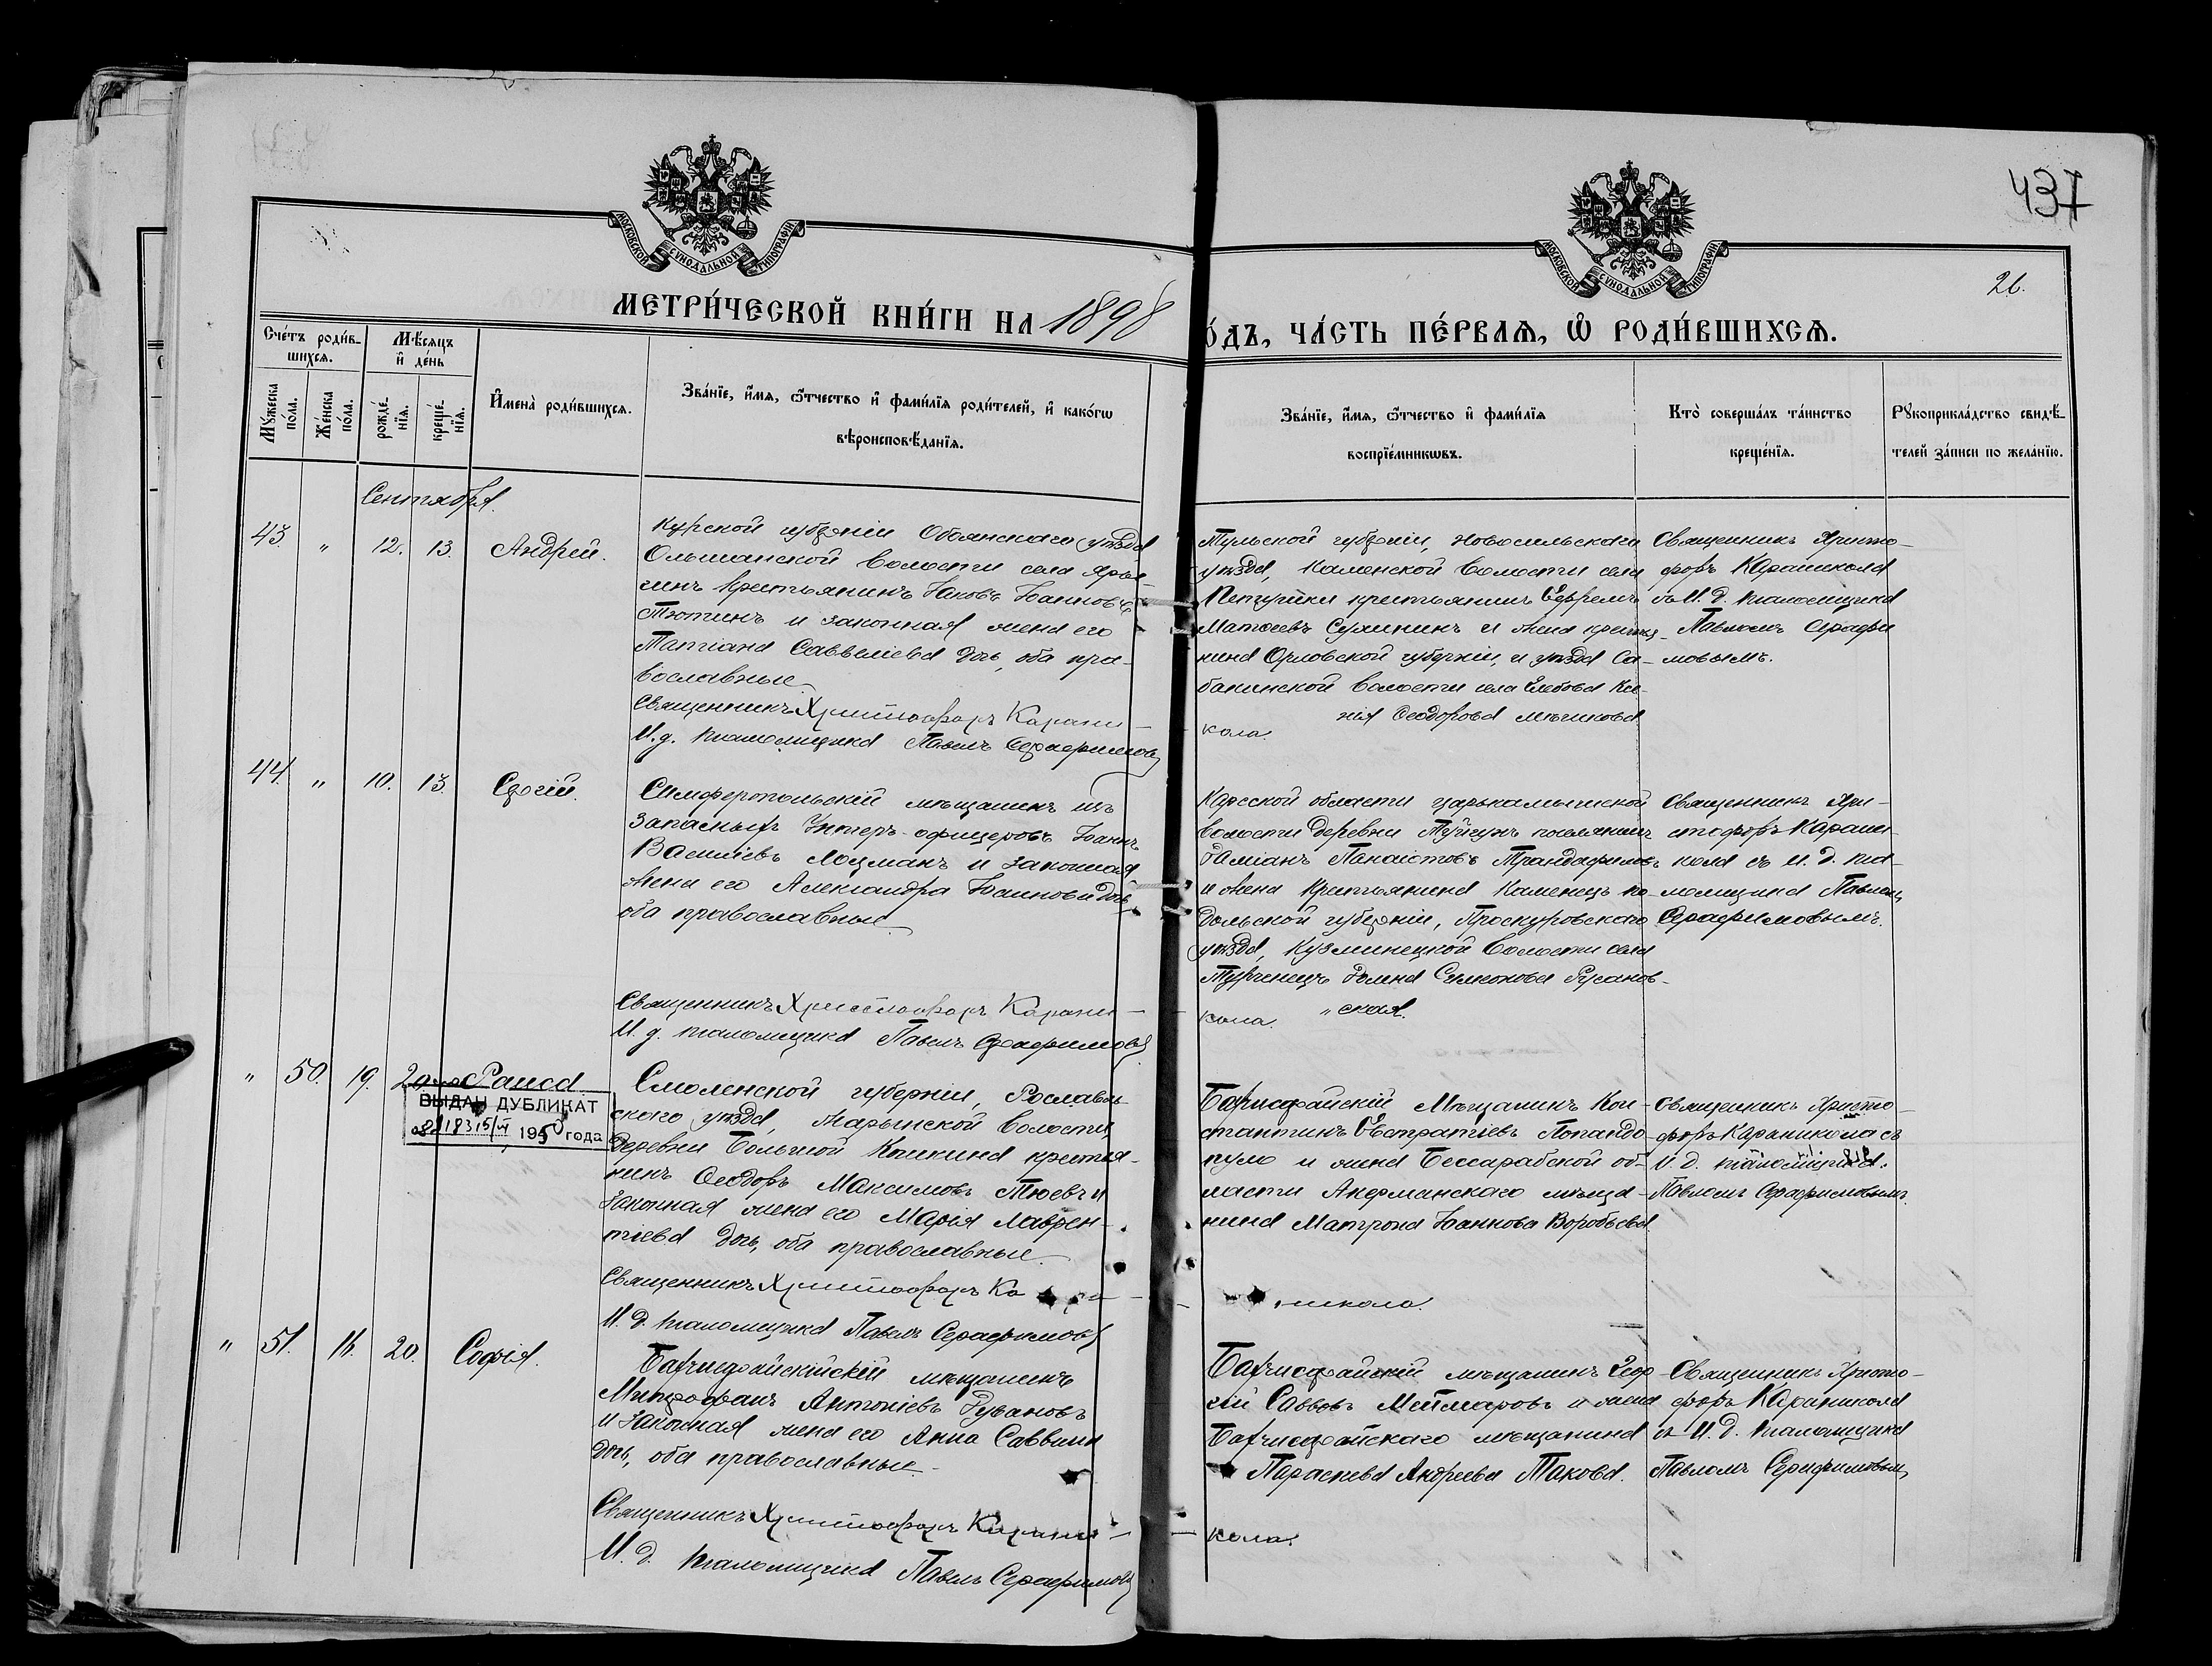 437
26.
МОСКОВСКОЙ СѴНОДАЛЬНОЙ ТИПОГРАФІИ
МОСКОВСКОЙ СѴНОДАЛЬНОЙ ТИПОГРАФІИ
МЕТРИ́ЧЕСКОЙ КНИ́ГИ НА 1898
О́ДЪ, ЧА́СТЬ ПЕ́РВАѦ, Ѡ҆ РОДИ́ВШИХСѦ.
Сче́тъ роди́в-
шихсѧ.
Мѣ́сѧцъ
и҆ де́нь
Мꙋ́жеска
по́ла.
Же́нска
по́ла.
рожде́-
нїѧ.
креще́-
нїѧ.
И҆мена̀ роди́вшихсѧ.
Зва́нїе, и҆́мѧ, ѻ҆́тчество и҆ фами́лїѧ роди́телей, и҆ како́гѡ
вѣроисповѣ́данїѧ.
Зва́нїе, и҆́мѧ, ѻ҆́тчество и҆ фами́лїѧ
воспрїе́мникѡвъ.
Кто̀ соверша́лъ та́инство
креще́нїѧ.
Рꙋкоприкла́дство свидѣ́-
телей за́писи по жела́нїю.
Сентября.
43. " 12. 13. Андрей.
Курской губерніи Обоянскаго уѣзда
Ольшанской волости села
крестьянинъ Іаковъ Іоанновъ
Тютинъ и законная жена его
Татіана Савеліева дочь, оба пра-
вославные
Священникъ Христофоръ Карани-
И.д. псаломщика Павелъ Серафимовъ
Тульской губерніи, Новосильскаго
уѣзда, Каменской волости села
крестьянинъ Ефремъ
Матѳеевъ и жена
Орловской губерніи, и уѣзда Са-
банинской волости села Глебова Кс
нія Ѳеодорова
кола.
Священникъ Христо-
форъ Караникола
съ И.д. псаломщика
Павломъ Серафи
мовымъ.
44. " 10. 13. Сергій.
Симферопольскій мѣщанинъ изъ
запасныхъ унтеръ-офицеровъ Іоаннъ
Василіевъ Лоцманъ и законная
жена его Александра Іоаннова дочь
оба православные
Священникъ Христофоръ Карани-
И.д. псаломщика Павелъ Серафимовъ
Карсской области
волости деревни поселянинъ
Даміанъ Панаіотовъ Трандафиловъ
и жена крестьянина Каменецъ по
дольской губерніи, Проскуровскаго
уѣзда, Кузминецкой волости села
Домна Симеонова Русанов-
ская.
кола.
Священникъ Хри-
стофоръ Карани-
кола съ И.д. пса-
ломщика Павломъ
Серафимовымъ.
" 50. 19. 20. Раиса
ВЫДАН ДУБЛИКАТ
1950 года
Смоленской губерніи, Рославль-
скаго уѣзда, волости,
деревни Большой крестья-
нинъ Ѳеодоръ Максимовъ Тюевъ и
законная жена его Марія Лаврен-
тіева дочь, оба православные
Священникъ Христофоръ Ка
И.д. псаломщика Павелъ Серафимовъ
Бахчисарайскій Мѣщанинъ Кон-
стантинъ Евстратіевъ Попандо-
пуло и жена Бессарабской об-
ласти Аккерманскаго мѣща-
нина Матрона Іоаннова Воробьева.
никола.
Священникъ Христо-
форъ Караникола съ
И.д. псаломщика
Павломъ Серафимовымъ
" 51. 16. 20. Софія.
Бахчисарайскійскій мѣщанинъ
Митрофанъ Антоніевъ Рувановъ
и законная жена его Анна Саввина
дочь, оба православные.
Священникъ Христофоръ Карани-
И.д. псаломщика Павелъ Серафимовъ
Бахчисарайскій мѣщанинъ Геор-
гій Саввовъ Меймаровъ и жена
Бахчисарайскаго мѣщанина
Параскева Андреева Такова.
кола.
Священникъ Христо-
форъ Караникола
съ И.д. псаломщика
Павломъ Серафимовымъ